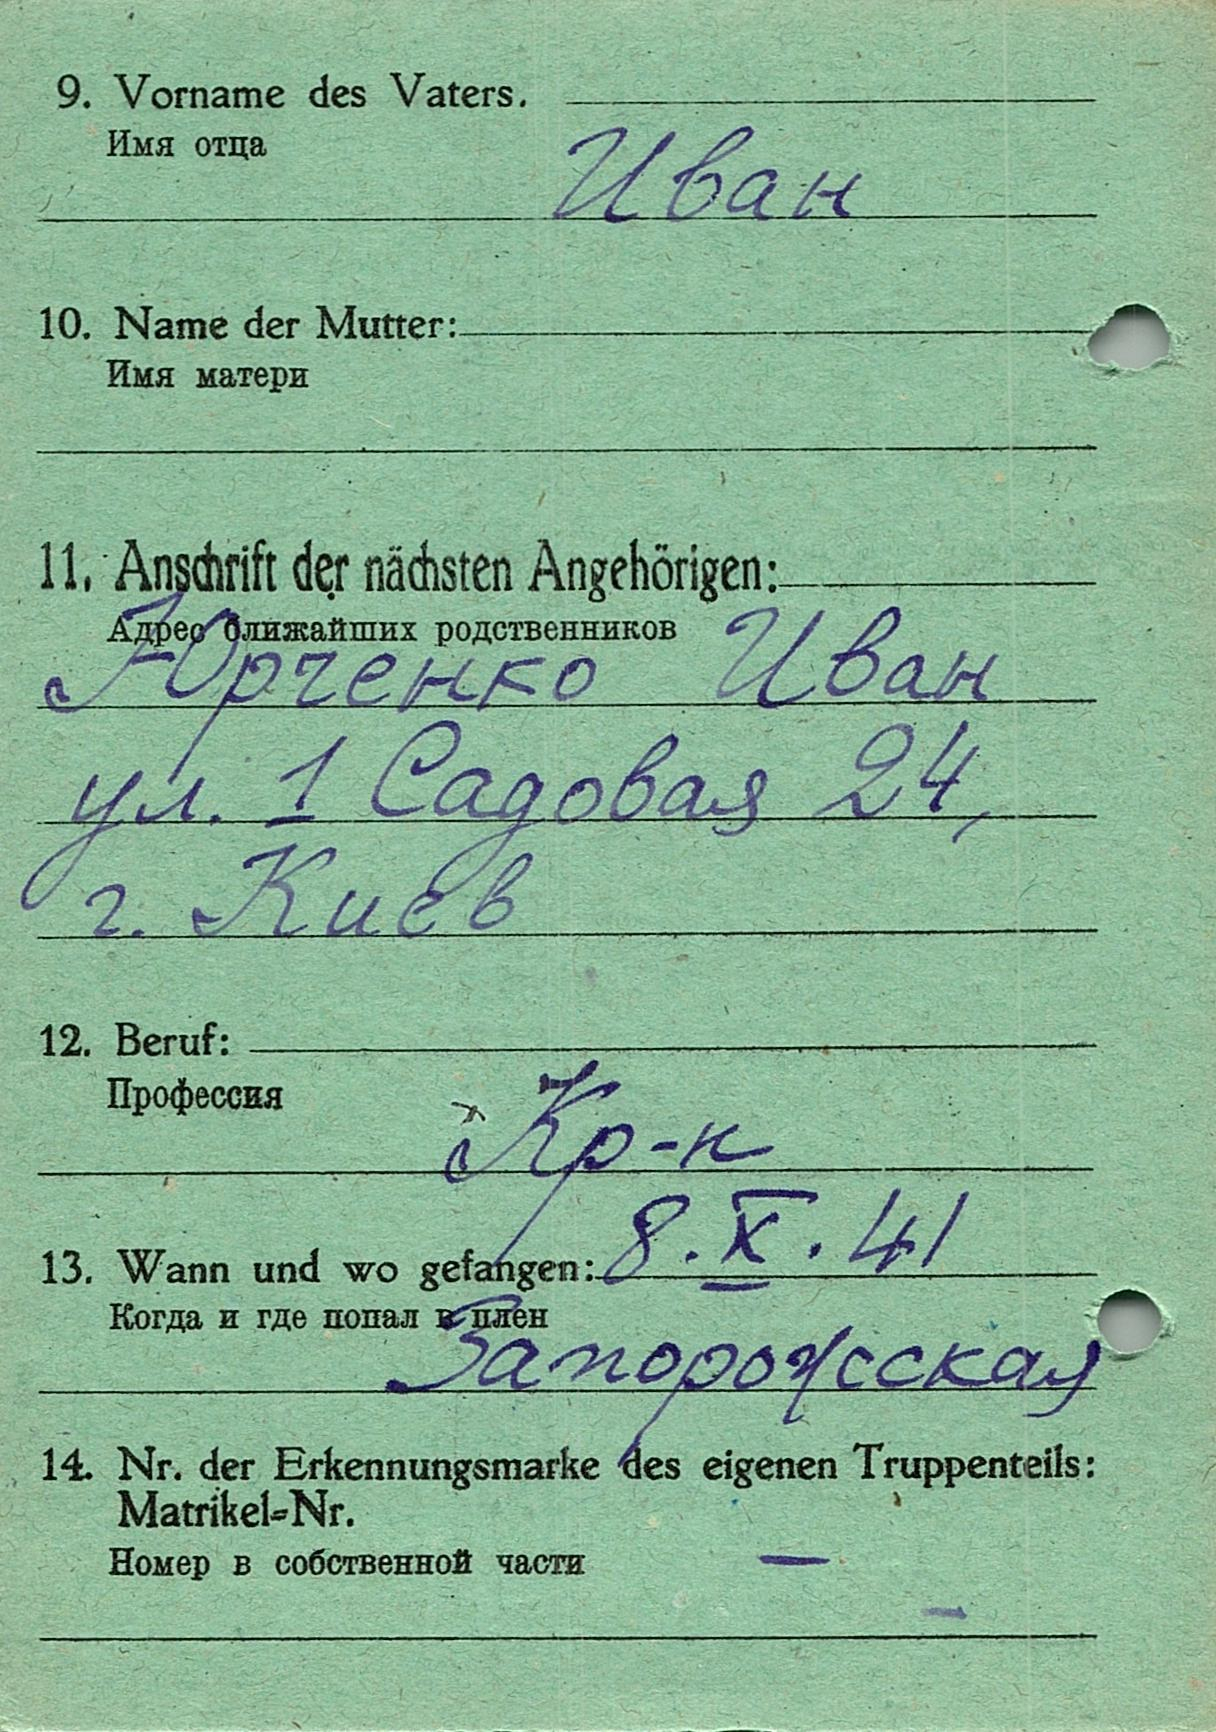 9. Vorname des Vaters.
Имя отца
Иван
10. Name der Mutter:
Имя матери
11. Anschrift der nächsten Angehörigen:
Адрес ближайших родственников
Юрченко Иван
ул. 1 Садовая 24,
г. Киев
12. Beruf:
Профессия
Кр-н
13. Wann und wo gefangen: 8.X.41
Когда и где попал в плен
Запорожсская
14. Nr. der Erkennungsmarke des eigenen Truppenteils:
Matrikel-Nr.
Номер в собственной части —
—